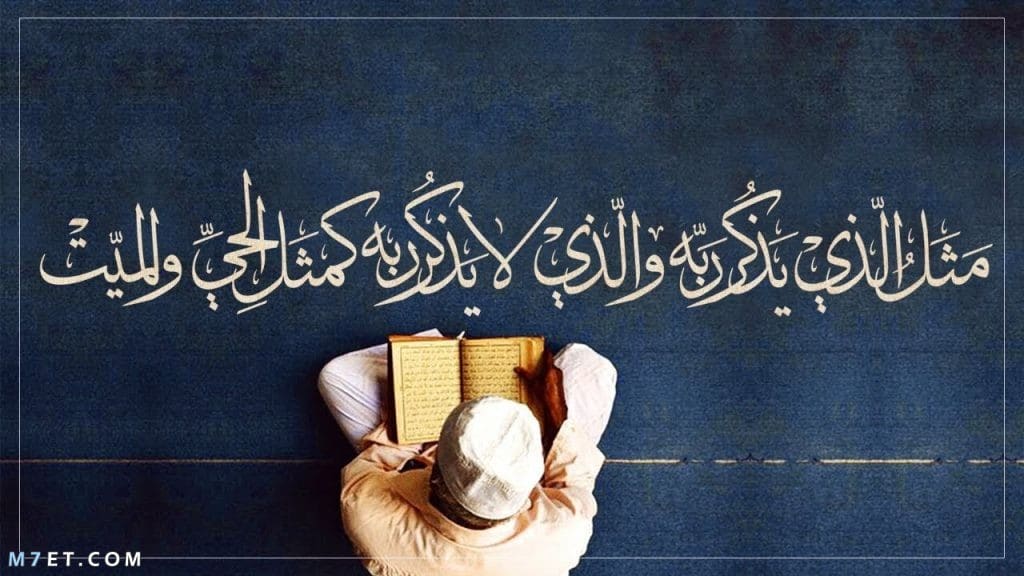 مَثَلُ الّذي يَذكُر رَبّه والّذي لا يَذكُر ربه كمثَل الحِيِّ والميّتْ
M7ET.COM